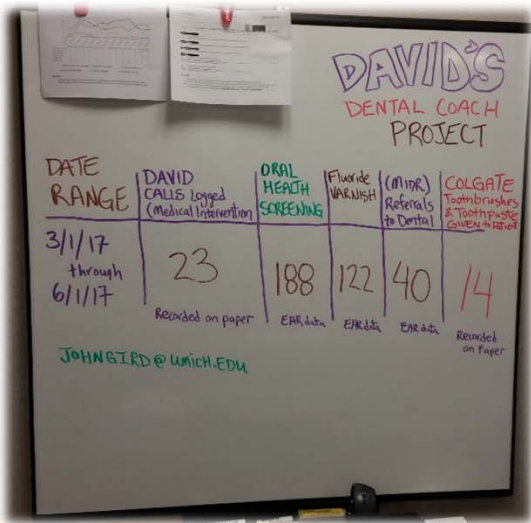 DAVID'S
DENTAL COACH
PROJECT
DATE
RANGE
DAVID
CALLS Logged
(Medical Intervention
ORAL
HEALTH
SCREENING
Fluoride
VARNISH
(MiDR)
Referrals
to Dental
COLGATE
Toothbrushes
& Toothpaste
GIVEN to
3/1/17
through
6/1/17
23
188
122
40
14
Recorded on paper
EHR data
EHR data
EHR data
Recorded
on Paper
JOHNGIRD@UMICH.EDU